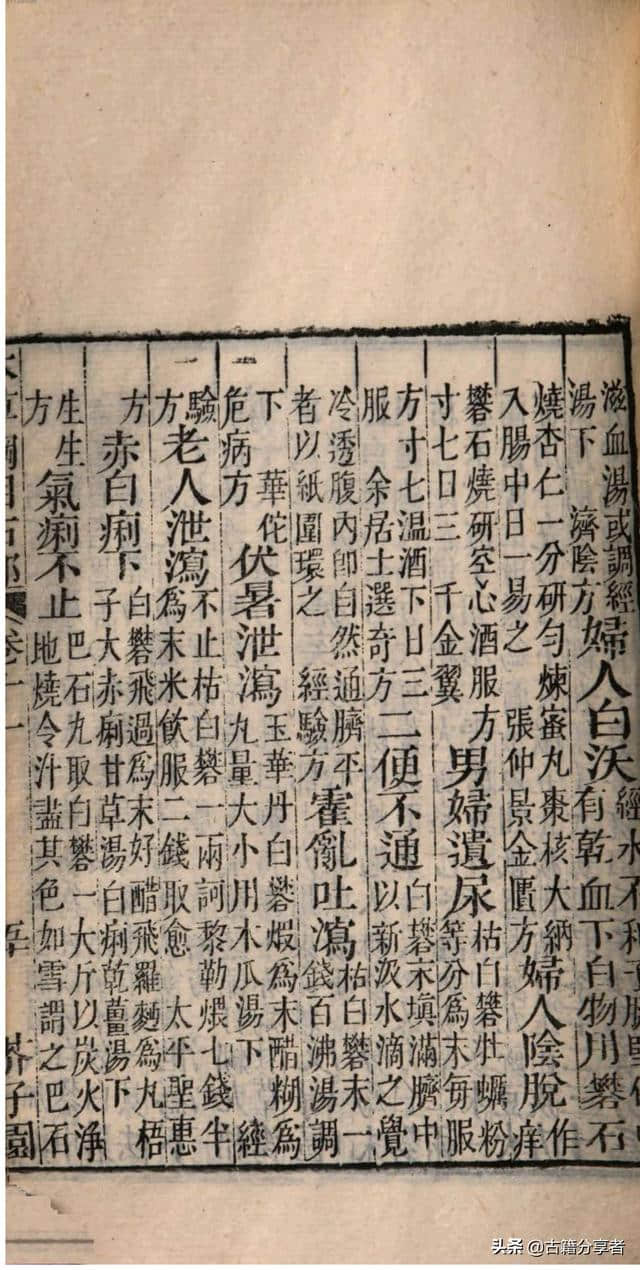 滋血湯或調經湯下 濟陰方婦人白沃經水不利子臟堅僻中有乾血下白物用礬石
燒杏仁一分研匀煉蜜丸棗核大納入腸中日一易之 張仲景金匱方婦人陰脫作痒
礬石燒研空心酒服方寸七日三 千金翼男婦遺尿枯白礬牡蠣粉等分為末每服
方寸七温酒下日三服 余居士選奇方二便不通白礬末填滿臍中以新汲水滴之覺
冷透腹內卽自然通臍平者以紙圍環之 經驗方霍亂吐瀉枯白礬末一錢百沸湯調
下 華佗危病方伏暑泄瀉玉華丹白礬煆為末醋糊為丸量大小用木瓜湯下 經
驗方老人泄瀉不止枯白礬一兩訶黎勒煨七錢半為末米飲服二錢取愈 太平聖惠
方赤白痢下白礬飛過為末好醋飛羅麵為丸梧子大赤痢甘草湯白痢乾薑湯下
生生方氣痢不止巴石丸取白礬一大斤以炭火淨地燒令汁盡其色如雪謂之巴石
本草綱目石部 卷十一 芥子園
头条 @古籍分享者